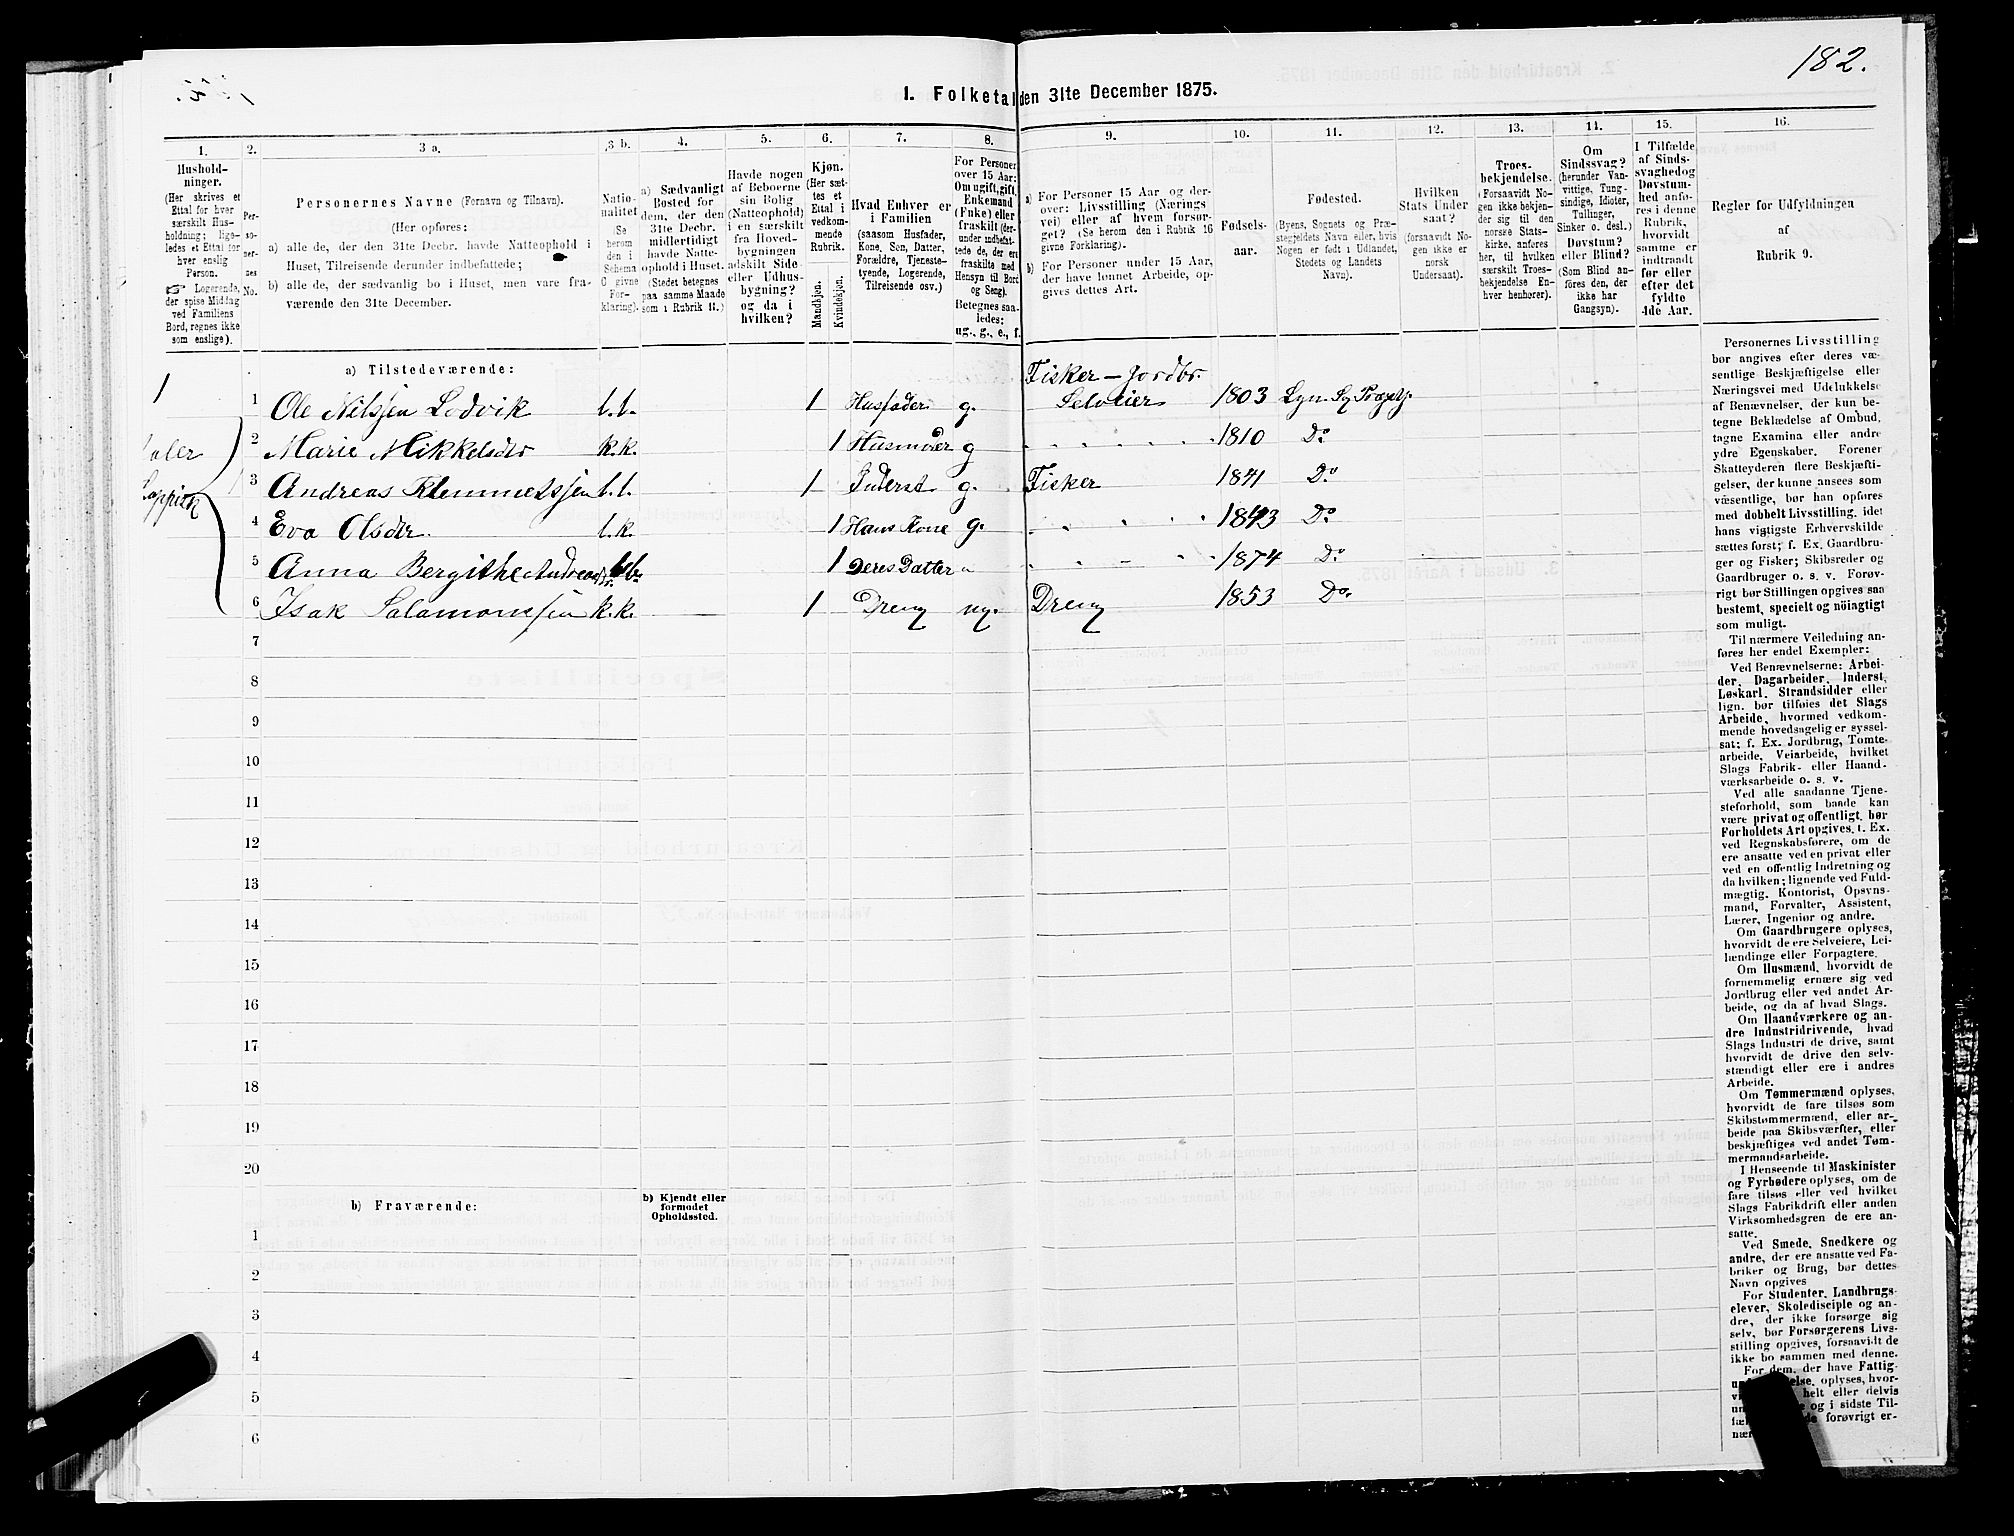 182.
1. Folketal den 31te December 1875.
1. 2. 3 a. 3 b. 4. 5. 6. 7. 8. 9. 10. 11. 12. 13. 14. 15. 16.
Hushold-
ninger.
(Her skrives et
Ettal for hver
særskilt Hus-
holdning; lige-
ledes et Ettal for
hver enslig
Person.
Logerende,
der spise Middag
ved Familiens
Bord, regnes ikke
som enslige).
Per-
so-
ner-
nes
No.
Personernes Navne (Fornavn og Tilnavn).
(Her opføres:
a) alle de, der den 31te Decbr. havde Natteophold i
Huset, Tilreisende derunder indbefattede;
b) alle de, der sædvanlig bo i Huset, men vare fra-
værende den 31te December.
Natio-
nalitet
Se
herom
den i
Schema
C givne
For-
klaring).
a) Sædvanligt
Bosted for
dem, der den
31te Decbr.
midlertidigt
havde Natte-
ophold i Huset.
(Stedet betegnes
paa samme Maade
som i Rubrik 11.)
Havde nogen
af Beboerne
sin Bolig
(Natteophold)
i en særskilt
fra Hoved-
bygningen
adskilt Side
eller Udhus-
bygning?
og da i
hvilken?
Kjøn.
(Her sæt-
tes et
Ettal i
vedkom-
mende
Rubrik.
Mandkjøn.
Kvindekjøn.
Hvad Enhver er
i Familien
(saasom Husfader,
Kone, Søn, Datter,
Forældre, Tjeneste-
tyende, Logerende,
Tilreisende osv.)
For Personer
over 15 Aar:
Om ugift, gift,
Enkemand
(Enke) eller
fraskilt (der-
under indbefat-
tede de, der ere
fraskilte med
Hensyn til Bord
og Seng).
Betegnes saa-
ledes:
ug., g., e., f.
a) For Personer 15 Aar og der-
over: Livsstilling (Nærings
vei) eller af hvem forsør-
get? (Se herom den i Rubrik 16
givne Forklaring).
b) For Personer under 15 Aar,
der have lønnet Arbeide, op-
gives dettes Art.
Fødsels-
aar.
Fødested.
(Byens, Sognets og Præ-
stegjeldets Navn eller, hvis
Nogen er født i Udlandet,
Stedets og Landets
Navn).
Hvilken
Stats Under
saat?
(forsaavidt No-
gen ikke er
norsk
Undersaat).
Troes-
bekjendelse.
(Forsaavidt No-
gen ikke bekjen-
der sig til den
norske Stats-
kirke, anføres
her, til hvilken
særskilt Troes-
bekjendelse En-
hver henhører).
Om
Sindssvag?
(herunder Van-
vittige, Tung-
sindige, Idioter,
Tullinger,
Sinker o. desl.)
Døvstum?
eller Blind?
(Som Blind an-
føres den, der
ikke har
Gangsyn).
I Tilfælde
af Sinds-
svaghed og
Døvstum-
hed anfø-
res i denne
Rubrik,
hvorvidt
samme er
indtraadt
før eller
efter det
fyldte
4de Aar.
Regler for Udfyldningen
af
Rubrik 9.
a) Tilstedeværende:
1
Fisker - Jordbr.
1 Ole Nilssen Lodvik l.l. 1 Husfader g. Selveier 1803
2 Marie Mikkelsdtr k.k. 1 Husmoder g 1810 Do
3 Andreas Klemmetssen l.l. 1 Inderst g. Fisker 1841 Do
4 Eva Olsdtr. l.k. 1 Hans Kone g. 1843 Do
5 Anna Bergithe Andreasdtr. 1 Deres Datter 1874 Do
6 Isak Salamonssen k.k. 1 Dreng ug. Dreng 1853 Do
7
8
9
10
11
12
13
14
15
16
17
18
19
20
b) Fraværende:
b) Kjendt eller
formodet
Opholdssted.
1
2
3
4
5
6
Personernes Livsstilling
bør angives efter deres væ-
sentlige Beskjæftigelse eller
Næringsvei med Udelukkelse
af Benævnelser, der kun be-
tegne Beklædelse af Ombud,
tagne Examina eller andre
ydre Egenskaber. Forener
Skatteyderen flere Beskjæfti-
gelser, der kunne ansees som
væsentlige, bør han opføres
med dobbelt Livsstilling, idet
hans vigtigste Erhvervskilde
sættes først; f. Ex. Gaardbru-
ger og Fisker; Skibsreder og
Gaardbruger o. s. v. Forøv-
rigt bør Stillingen opgives saa
bestemt, specielt og nøiagtigt
som muligt.
Til nærmere Veiledning an-
føres her endel Exempler:
Ved Benævnelserne: Arbei-
der, Dagarbeider, Inderst,
Løskarl, Strandsidder eller
lign. bør tilføies det Slags
Arbeide, hvormed vedkom-
mende hovedsagelig er syssel-
sat; f. Ex. Jordbrug, Tomte-
arbeide, Veiarbeide, hvilket
Slags Fabrik- eller Haand-
værksarbeide o. s. v.
Ved alle saadanne Tjene-
steforhold, som baade kan
være privat og offentligt, bør
Forholdets Art opgives, t. Ex.
ved Regnskabsførere, om de
ere ansatte ved en privat eller
ved en offentlig Indretning og
da hvilken; lignende ved Fuld-
mægtig, Kontorist, Opsyns-
mand, Forvalter, Assistent,
Lærer, Ingeniør og andre.
Om Gaardbrugere oplyses,
hvorvidt de ere Selveiere, Lei-
lændinge eller Forpagtere.
Om Husmænd, hvorvidt de
fornemmelig ernære sig ved
Jordbrug eller ved andet Ar-
beide, og da af hvad Slags.
Om Haandværkere og an-
dre Industridrivende, hvad
Slags Industri de drive, samt
hvorvidt de drive den selv-
stændigt eller ere i andres
Arbeide.
Om Tømmermænd oplyses,
hvorvidt de fare tilsøs som
Skibstømmermænd, eller ar-
beide paa Skibsværfter, eller
beskjæftiges ved andet Tøm-
mermandsarbeide.
I Henseende til Maskinister
og Fyrbødere oplyses, om de
fare tilsøs eller ved hvilket
Slags Fabrikdrift eller anden
Virksomhedsgren de ere an-
satte.
Ved Smede, Snedkere og
andre, der ere ansatte ved Fa-
briker og Brug, bør dettes
Navn opgives
For Studenter, Landbrugs-
elever, Skoledisciple og an-
dre, der ikke forsørge sig
selv, bør Forsørgerens Livs-
stilling opgives, forsaavidt de
ikke bo sammen med denne.
For dem, der have Fattig-
oplyses, hvor-
helt eller delvis
og i sidste Til-
forøvrigt er-